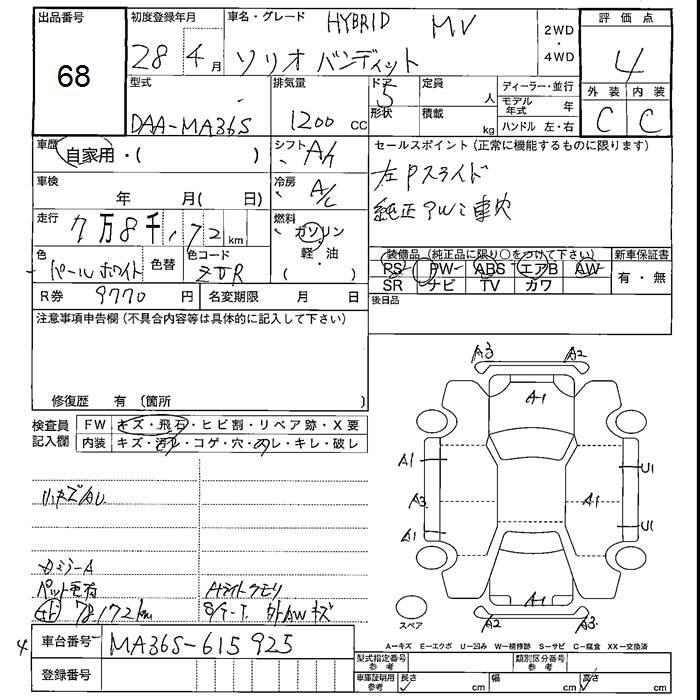 出品番号
68
初度登録年月
28 4月
車名・グレード
HYBRID MV
ソリオ バンディット
2WD
・
4WD
評価点
4
外装 内装
C C
型式
DAA-MA36S
排気量
1200 CC
ドア
5
形状
定員
人
積載
kg
ディーラー・並行
モデル年式 年
ハンドル 左・右
車歴
自家用・( )
シフト
A/t
セールスポイント(正常に機能するものに限ります)
左Pスライド
純正アルミ車穴
車検
年 月( 日)
冷房
A/C
走行
7万8千,172km
燃料
ガソリン
・
軽・油
( )
色
パールホワイト
色替
色コード
ZJR
装備品(純正品に限り○をつけて下さい)
PS PW ABS エアB AW
SR ナビ TV カワ
新車保証書
有・無
R券 9770 円
名変期限 月 日
後日品
注意事項申告欄(不具合内容等は具体的に記入して下さい)
修復歴 有 (箇所
検査員
記入欄
FW キズ・飛石・ヒビ割・リペア跡・X要
内装 キズ・汚レ・コゲ・穴・スレ・キレ・破レ
小キズAU
カミラーA
ペット毛有
78,172km
Hライトクモリ
S/T-T. 外AWキズ
A3 A2
A1
A1 U1
A3 A1
A1 U1
A1
A2 A3
スペア
A-キズ E-エクボ U-凹み W-補修跡 S-サビ C-腐食 XX-交換済
4
車台番号
MA36S-615925
登録番号
型式指定番号
参考
類別区分番号
参考
車庫証明用
参考
長さ cm 幅 cm 高さ cm